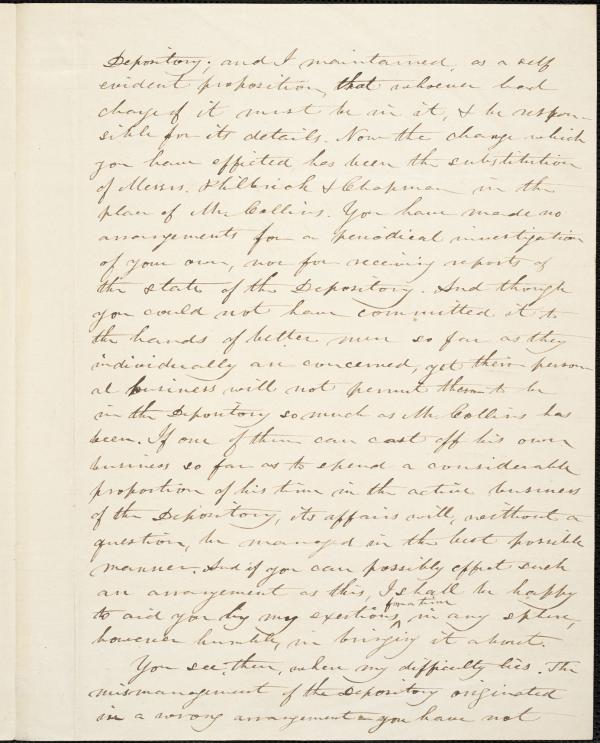 Depository; and I maintained, as a self
evident proposition, that whoever had
charge of it, must be in it, & be respon-
sible for its details. Now the change which
you have effected has been the substitution
of Messrs. Philbrick & Chapman in the
place of Mr. Collins. You have made no
arrangements for a periodical investigation
of your own, nor for receiving reports of
the state of the Depository. And though
you could not have committed it to
the hands of better men so far as they
individually are concerned, yet their person-
al business will not permit them to be
in the Depository so much as Mr. Collins has
been. If one of them can cast off his own
business so far as to spend a considerable
proportion of his time in the active business
of the Depository, its affairs will, without a
question, be managed in the best possible
manner. And if you can possibly effect such
an arrangement as this, I shall be happy
for a time
to aid you by my exertions, ^ in any sphere,
however humble, in bringing it about.
You see, then, where my difficulty lies. The
mismanagement of the Depository originated
in a wrong arrangement & you have not